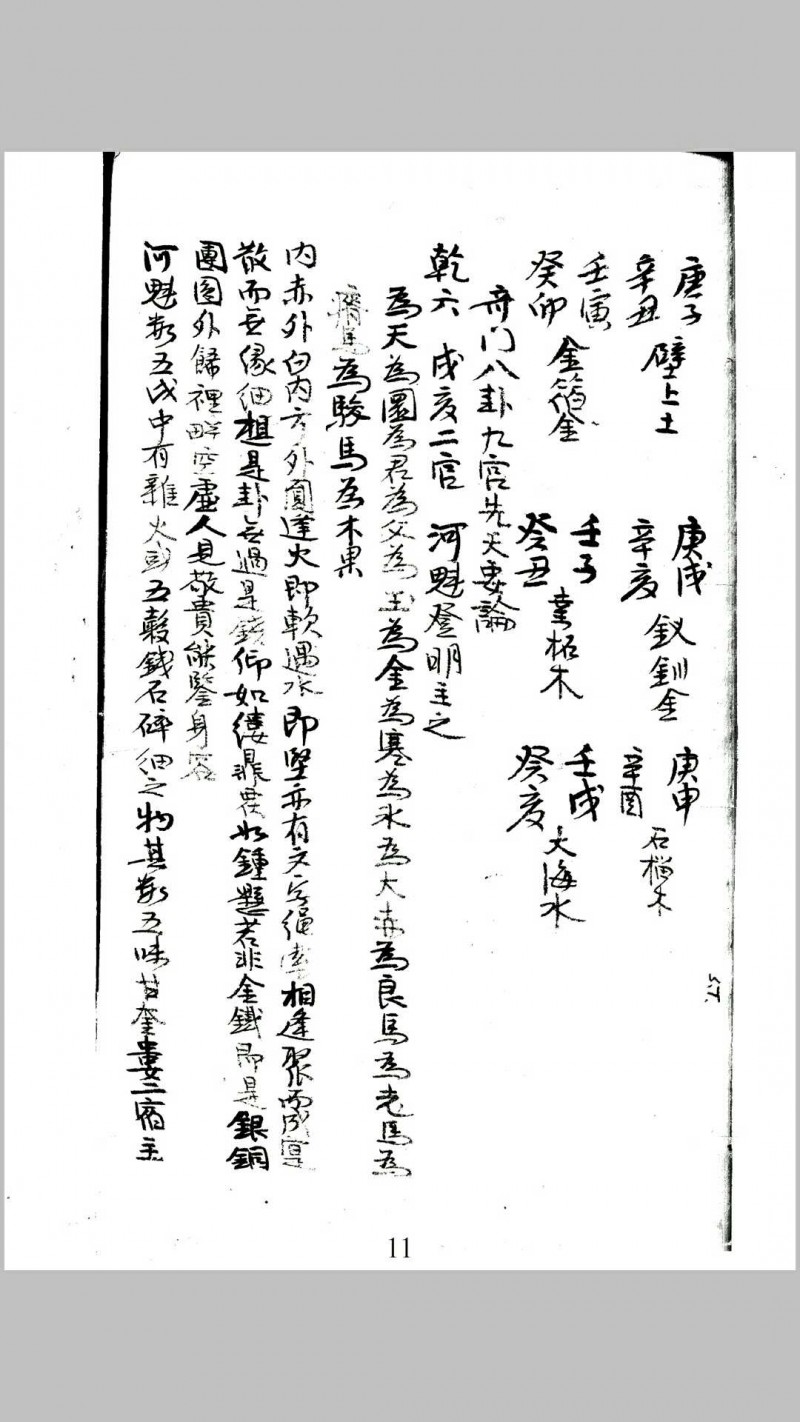 庚子
辛丑 壁上土
庚戌
辛亥 釵釧金
庚申
辛酉 石榴木
壬寅
癸卯 金箔金
壬子
癸丑 桑柘木
壬戌
癸亥 大海水
奇门八卦九宫先天要論
乾六 戌亥二宫 河魁登明主之
為天為圜為君為父為玉為金為寒為冰為大赤為良馬為老馬為
瘠馬為駁馬為木果
内赤外白内方外圓逢火即軟遇水即堅亦有文 繩 相逢聚而成
散而无缘細想是卦无過是錢仰如 鍾懸若非金鐵即是銀銅
團圓外歸裡畔空虚人見敬貴能鑒身容
河魁数五戌中有雜火 五穀錢石碎細之物其数五味甘奎婁二宿主
11